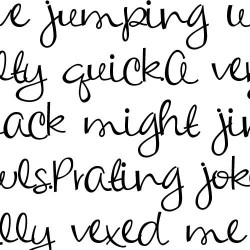 e jumping w
lty quick.A ver
ack might jin
wls.Prating jok
lly vexed me